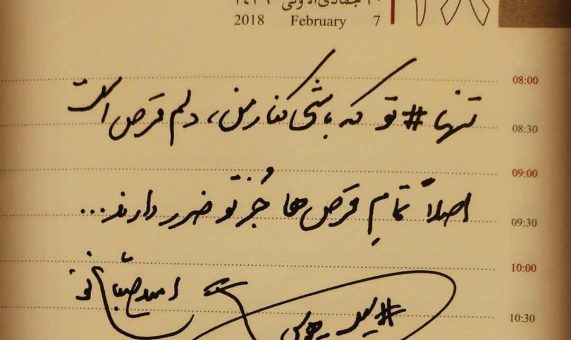 ۲۰ جمادی الاولی ۱۴۳۹
2018 February 7
۱۸
08:00
تنها #تو که باشی کنار من، دلم قرص است
08:30
09:00
اصلاً تمامِ قرص ها جُز تو ضرر دارند...
09:30
10:00
امید صباغ نو
10:30